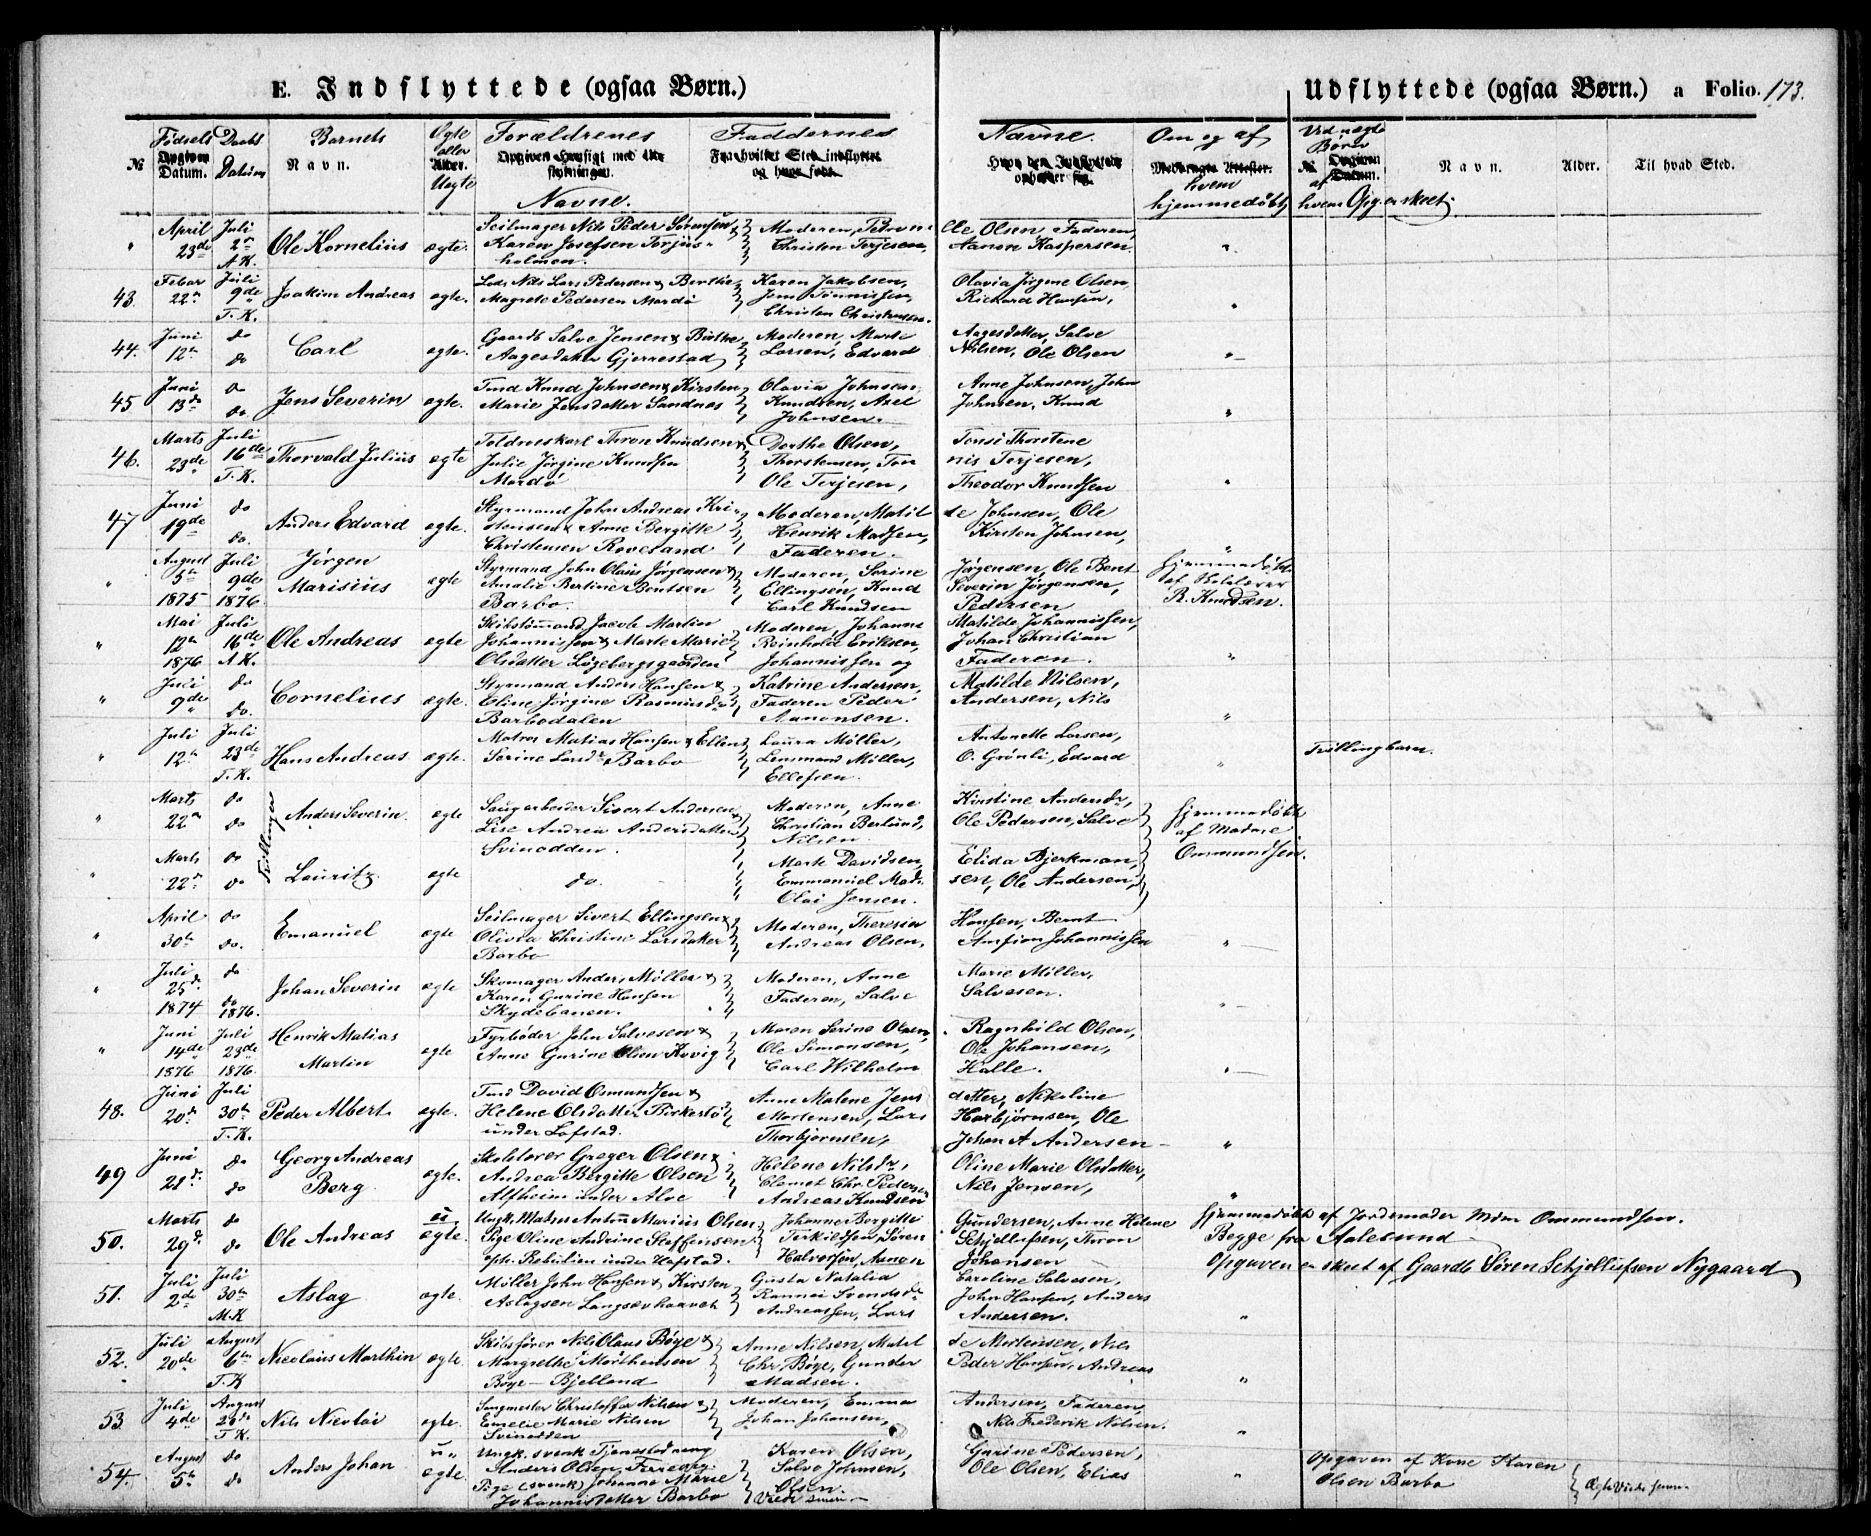 E. Indflyttede (ogsaa Børn.)
Udflyttede (ogsaa Børn.) a Folio. 173.
№ Fødsels Datum. Daabs Datum Barnets Navn. Ægte eller Uægte Forældrenes Navne. Faddernes Navne. Om og af hvem hjemmedøbt Ved uægte Børn af hvem Opg. er skeet.
№ Navn. Alder. Til hvad Sted.
" April 23de Juli 2n A.K. Ole Kornelius ægte. Seilmager Nils Peder Sørensen & Moderen, Petron elle Olsen, Faderen,
Karen Josefsen Torjus- Christen Terjesen, Nanon Kaspersen. "
holmen.
43. Febar 22n Juli 9de T.K. Joakim Andreas ægte. Lods Nils Lars Pedersen & Berthe Karen Jakobsen, Olavia Jørgine Olsen,
Magrete Pedersen Mardø Jens Tønnissen, Rickard Hansen, "
Christen Christensen.
44. Juni 12n do do Carl ægte. Gaardb Salve Jensen & Birthe Moderen, Marte Aagesdatter, Salve
Aagesdatter Gjerrestad Larsen, Edvard Nilsen, Ole Olsen "
45 Juni 13de do do. Jens Severin ægte. Tmd Knud Johnsen & Kirsten Olavia Johnsen, Anne Johnsen, John
Marie Jensdatter Sandnes Knudsen, Axel Johnsen, Knud "
Johnsen.
46. Marts 23de Juli 16de T.K. Thorvald Julius ægte Toldroeskarl Thron Knudsen & Dorthe Olsen, Tonsi Thorstene
Julie Jørgine Knudsen Thorstensen, Ton nis Terjesen,
Mardø Ole Terjesen, Theodor Knudsen "
47 Juni 19de do do. Anders Edvard ægte. Styrmand John Andreas Kri- Moderen, Matil de Johnsen, Ole
stensen & Anne Bergitte Henrik Madsen, Kirsten Johnsen,
Christensen Roveland Faderen. "
" August 5te 1875 Juli 9de 1876. Jørgen Marisius ægte Styrmand John Olaus Jørgensen & Moderen, Serine Jørgensen, Ole Bent Hjemmedøbt
Amalie Bertine Bentsen Ellingsen, Knud Severin Jørgensen, af Skolelærer
Barbo. Carl Knudsen Pedersen R. Knudsen.
" Mai 12n 1876 Juli 16de A.K. Ole Andreas ægte Skibstømmand Jacob Martin Moderen, Johanne Matilde Johannissen,
Johannissen & Marte Marie Reinhold Eriksen, Johan Christian
Olsdatter Løgebergsgaarden Johannissen og Faderen. "
" Juli 9de do do. Cornelius ægte. Styrmand Anders Hansen & Katrine Andersen, Matilde Nilsen,
Eline Jørgine Rasmusdr Faderen Peder Andersen, Nils
Barbodalen Aanonsen. "
" Juli 12n Juli 23de T.K. Hans Andreas ægte. Matros Matias Hansen & Ellen Laura Møller, Antonette Larsen, Tvillingbarn.
Serine Larsdr Barbo Lensmand Møller, O. Grønli, Edvard "
Ellefsen
" Marts 22n do do Tvillinger Anders Severin. ægte Saugarbeider Sivert Andersen & Moderen, Anne Kirstine Andersdr, Hjemmedøbt
Lise Andrea Andersdatter Christian Berlund, Ole Pedersen, Salve af Madme
Svinodden. Nilsen Ommundsen.
" Marts 22n do do Lauritz ægte do. Marte Davidsen, Elida Bjerkman,
Emmanuel Mad- sen, Ole Andersen,
Olai Jensen.
" April 30te do do. Emanuel ægte Seilmager Sivert Ellingsen & Moderen, Theresia Hansen, Bernt
Olivia Christine Larsdatter Andreas Olsen, Amfion Johannissen "
Barbo
" Juli 25d. 1874 do do 1876. Johan Severin ægte Skomager Anders Møller & Moderen, Anne Marie Møller,
Karen Gurine Hansen Faderen, Salve Salvesen. "
Skydebanen.
" Juni 14de 1876 Juli 23de 1876. Henrik Matias Martin ægte Fyrbøder John Salvesen & Maren Serine Olsen, Ragnhild Olsen,
Anne Gurine Olsen Kovig Ole Simonsen, Ole Johansen,
Carl Wilhelm Halle. "
48. Juni 20d. Juli 30te T.K. Peder Albert ægte. Tmd David Osmundsen & Anne Malene Jens datter, Nikoline
Helene Olsdatter Birkestø Mortensen, Lars Harbjørnsen, Ole
under Løfstad. Thorbjørnsen, Johan A Andersen "
49 Juni 21d. do do Georg Andreas Berg ægte. Skolelærer Greger Olsen & Helene Nilsdr, Oline Marie Olsdatter,
Andrea Bergitte Olsen Clemet Chr. Pedersen Nils Jensen,
Alfheim under Alve Andreas Knudsen "
50. Marts 29d. do do Ole Andreas ei ægte. Ungk. Matros Anton Marius Olsen. Johanne Bergitte Gundersen, Anne Helene Hjemmedøbt af Jordemoder Mdm Ommundsen.
Pige Oline Andrine Steffensen Terkildsen, Søren Schjellefsen, Thron Begge fra Aalesund
oph. Rebilien under Hafstad. Halvorsen, Aanon Johansen Opgaven er skeet af Gaardb Søren Schjellefsen Nygaard
51. Juli 2de Juli 30te M.K Aslag ægte. Müller John Hansen & Kirsten Gusta Natalia Caroline Salvesen,
Aslagsen Langsævhaaven Rannei Svendsdr John Hansen, Anders
Andreassen, Lars Andersen. "
52. Juli 20de August 6te T.K Nicolaus Marthin ægte. Skibsfører Nils Olaus Bøye & Anne Nilsen, Matil de Mortensen, Nils
Margrethe Marthensen Chr. Bøye, Gunder Peder Hansen, Andreas
Bøye — Bjelland Madsen. "
53. Juli 4de August 20de T.K. Nils Nicolai ægte. Saugmester Christoffer Nilsen & Moderen, Emma Andersen, Faderen,
Emelie Marie Nilsen Johan Johansen, Nils Frederik Nilsen.
Svinodden "
54. August 5te do do Anders Johan u- ægte Ungk. svensk Tjenestedreng Karen Olsen, Gurine Pedersen, Opgaven af Kone Karen
Anders Olsen, Salve Johnsen, Ole Olsen, Elias " Olsen Barbo
Pige (svensk) Johanne Marie Olsen.
Johannisdatter Barbo